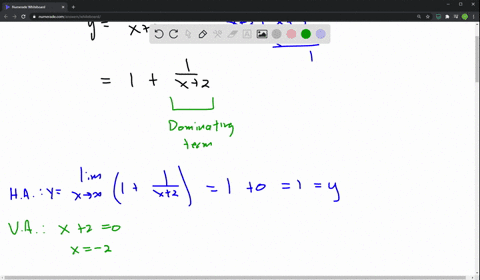 Numerade Whiteboard
numerade.com
y =
x+
1
= 1 + 1/(x+2)
Dominating
term
H.A.: y = lim x→∞ (1 + 1/(x+2)) = 1 + 0 = 1 = y
V.A.: x + 2 = 0
x = -2